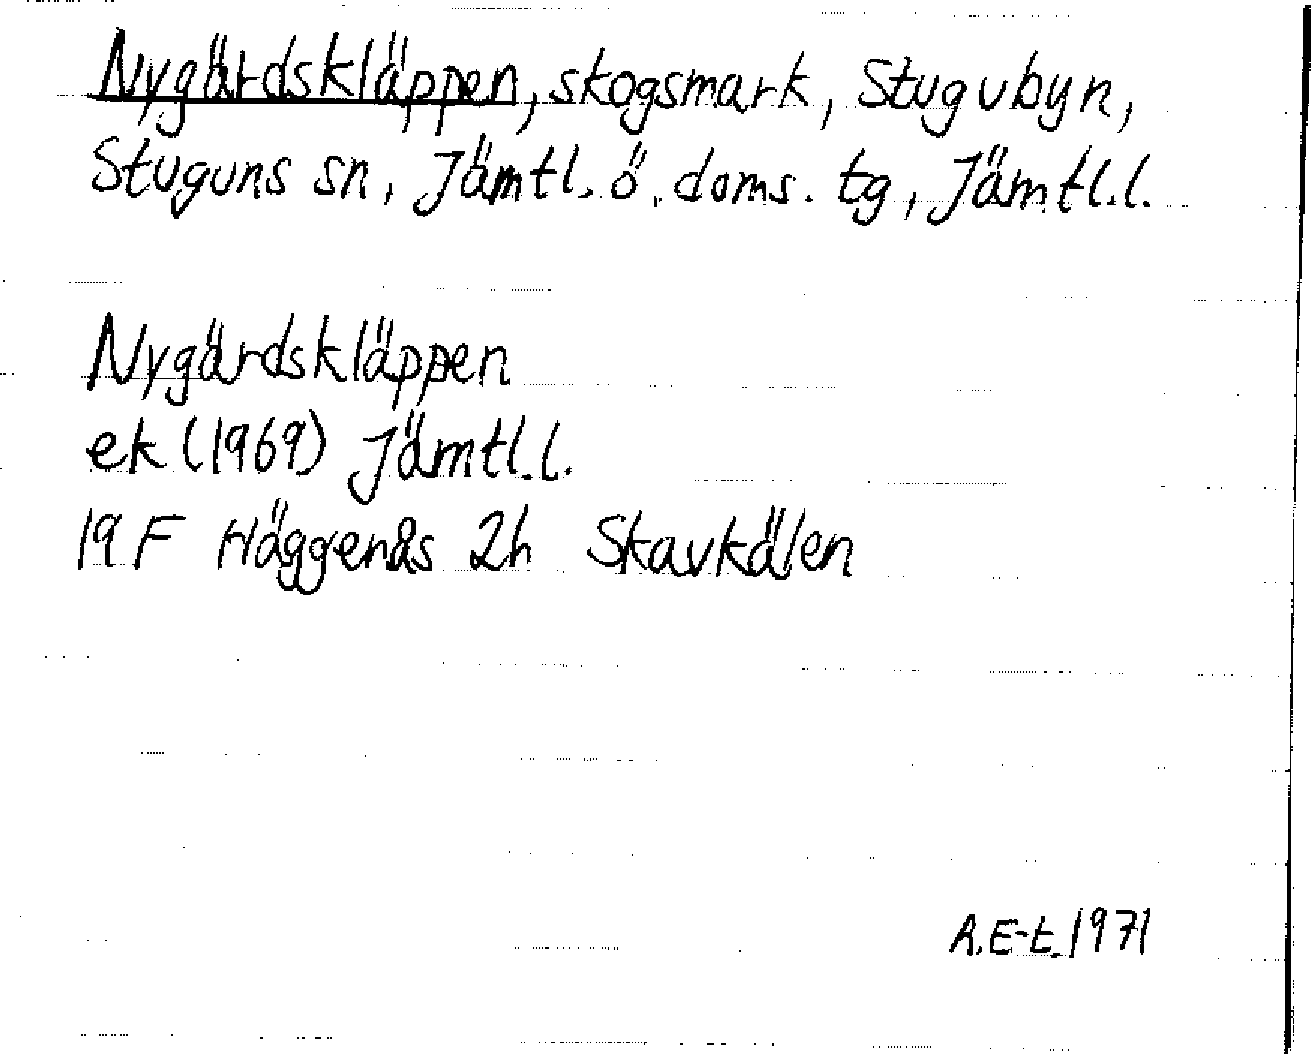 Nygärdskläppen, skogsmark, Stugubyn,
Stuguns sn, Jämtl. ö. doms. tg, Jämtl.l.
Nygärdskläppen
ek (1969) Jämtl.l.
19 F Häggenås 2h Skavkälen
A.E-t. 1971